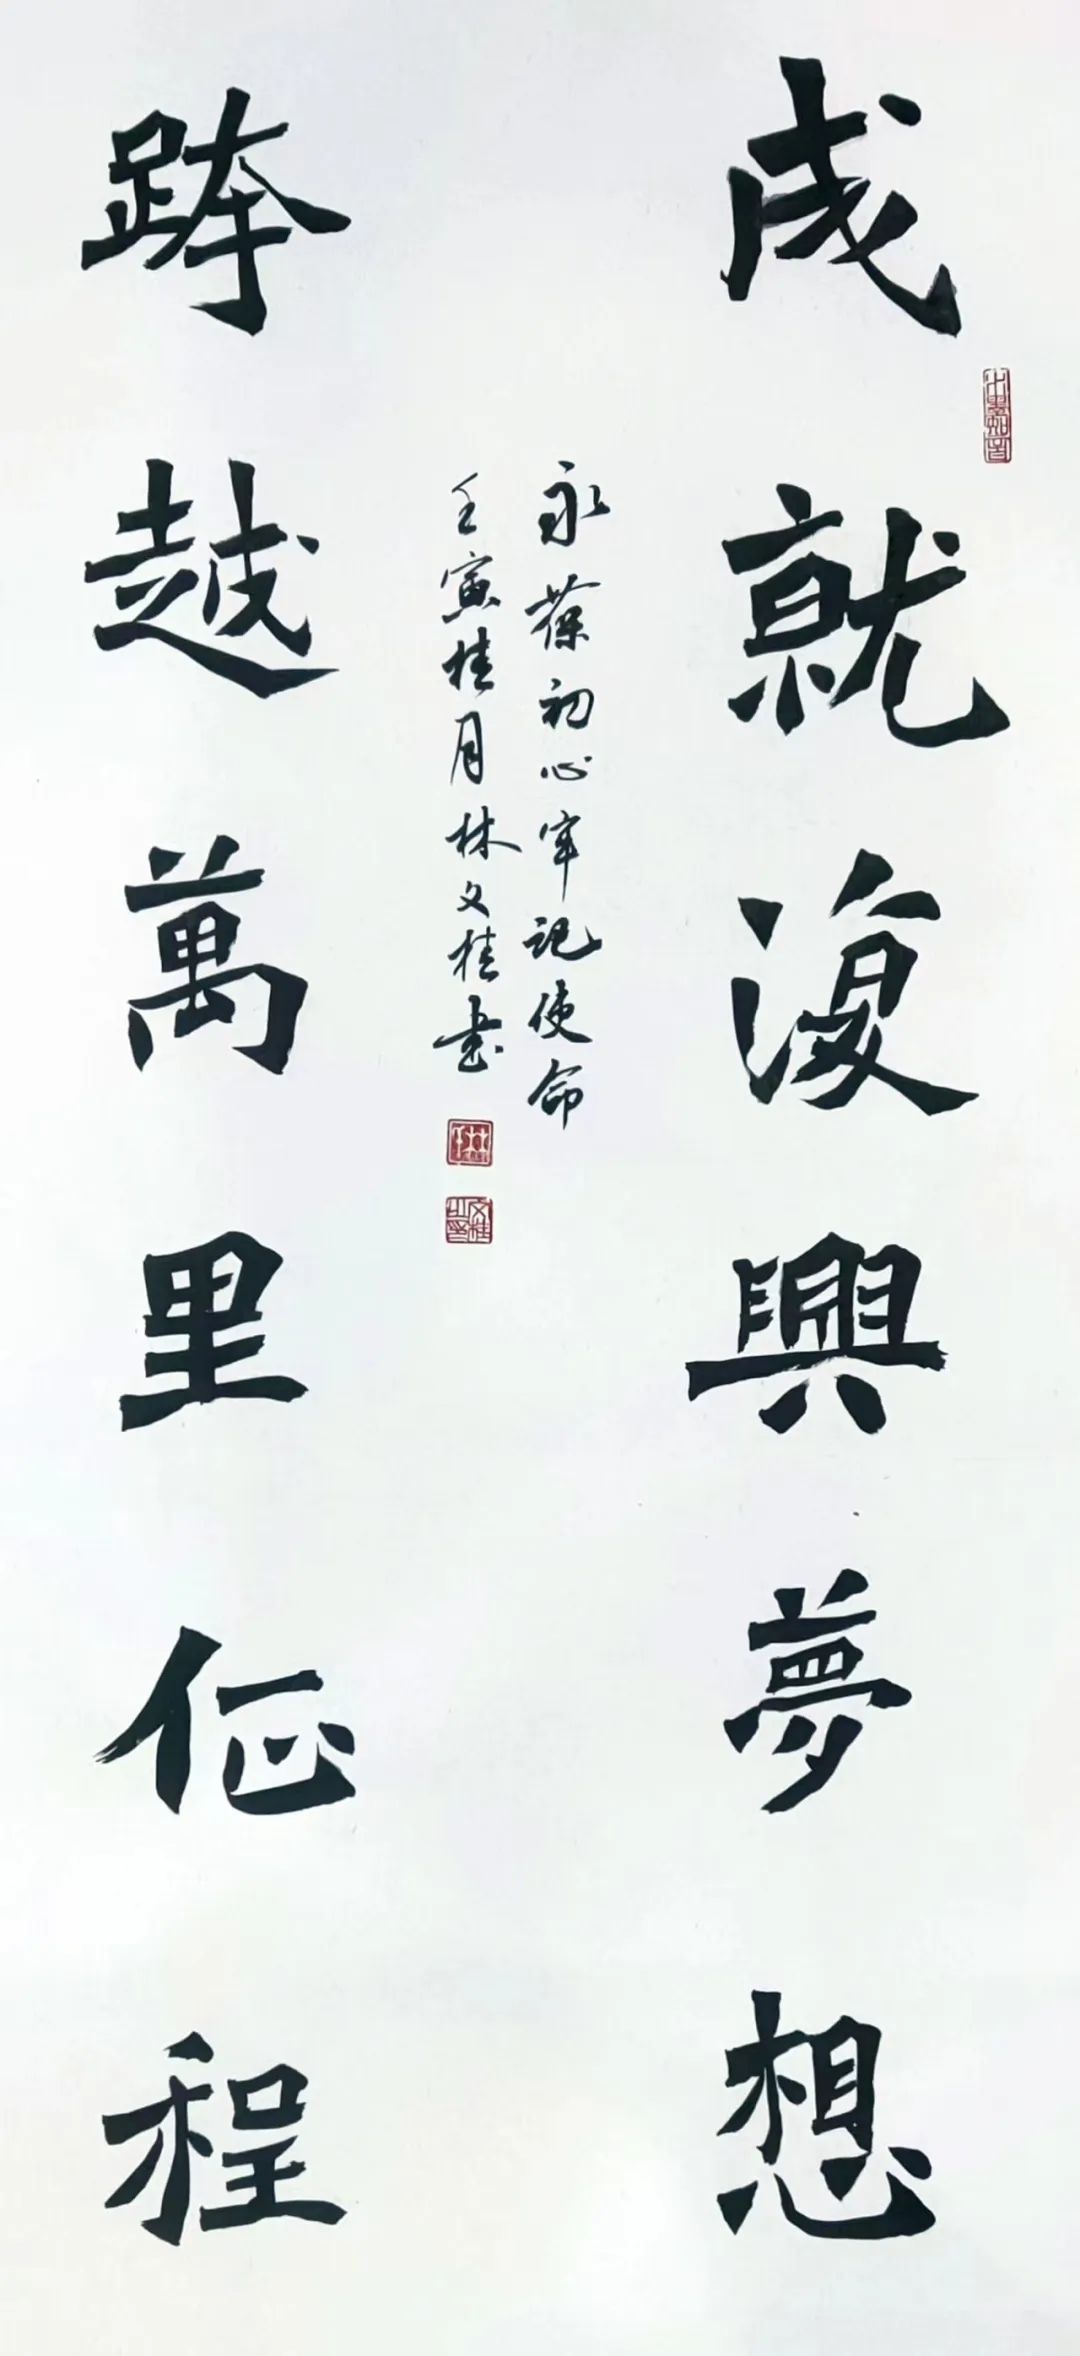 成就復興夢想
跨越萬里征程
永葆初心牢记使命
壬寅桂月林文桂书
文桂之印